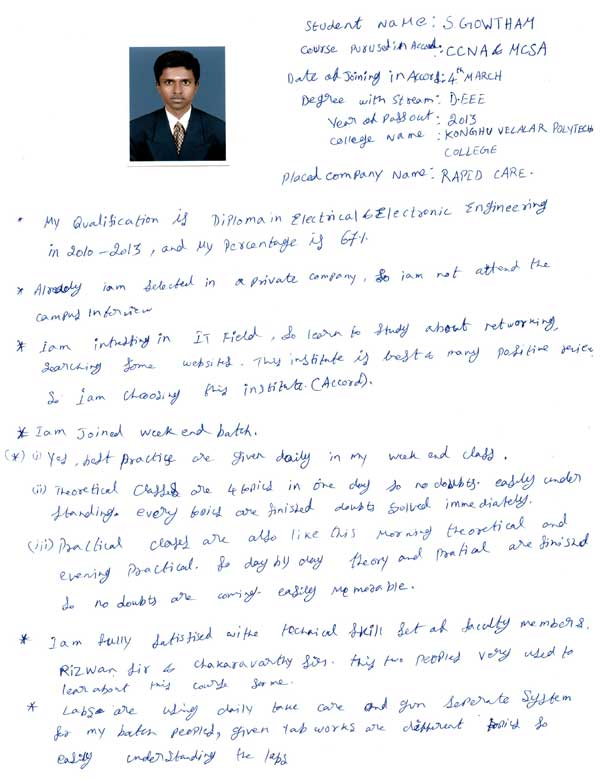 Student Name : S. GOWTHAM
Course Purused in Accord : CCNA & MCSA
Date of Joining in Accord : 4th MARCH
Degree with Stream : D.EEE
Year of Passout : 2013
College Name : KONGHU VELALAR POLYTECH
COLLEGE
Placed Company Name : RAPID CARE.
* My Qualification is Diploma in Electrical & Electronic Engineering
in 2010-2013, and My Percentage is 67%
* Already iam selected in a private company, So iam not attend the
campus Interview
* Iam intrusting in IT Field, So learn to study about networking,
Searching Some websites. This institute is best & many positive review
So iam choosing this institute. (Accord).
* Iam Joined week end batch.
(*) (i) Yes, best practice are given daily in my week end class.
(ii) Theoretical Classes are 4 topics in one day so no doubts. easily under
standing. every topics are finished doubts solved immediately.
(iii) Practical clases are also like this Morning theoretical and
evening Practical. So day by day theory and pratial are finished
So no doubts are coming. easily Memorable.
* Iam fully satisfied withe technical skill set of faculty members.
Rizwan Sir & Chakaravarthy Sir. this two peoples very used to
lear about this course for me.
* Labs are using daily take care and givn seperate System
for my batch peoples, given lab works are different topics so
easily understanding the labs